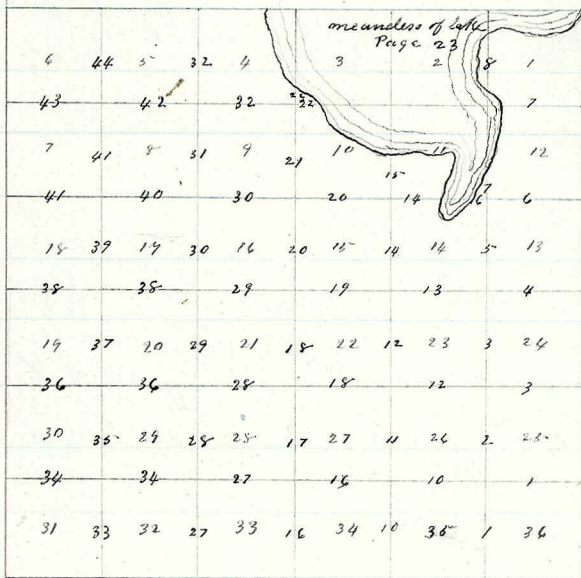 meanders of lake
Page 23
6 44 5 32 4 3 2 8 1
43 42 32 22 22 7
7 41 8 31 9 21 10 11 12
15
41 40 30 20 14 6 7 6
18 39 17 30 16 20 15 14 14 5 13
38 38 29 19 13 4
19 37 20 29 21 18 22 12 23 3 24
36 36 28 18 12 3
30 35 29 28 28 17 27 11 26 2 25
34 34 27 16 10 1
31 33 32 27 33 16 34 10 35 1 36